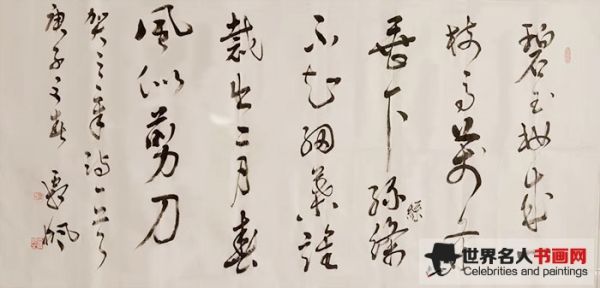 碧玉妝成
樹高萬條
垂下絲絛
綠
不知細葉誰
裁出二月春
風似剪刀
賀之章詩一首
庚子之春
世界名人书画网
Celebrities and paintings